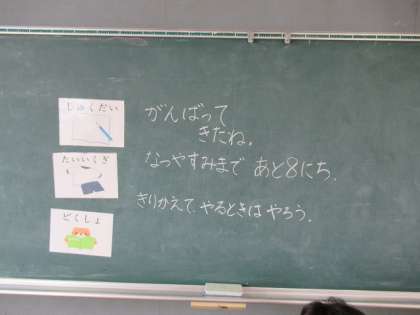 しゅくだい
たいいくぎ
どくしょ
がんばって
きたね。
なつやすみまで あと8にち.
きりかえて、やるときは やろう.